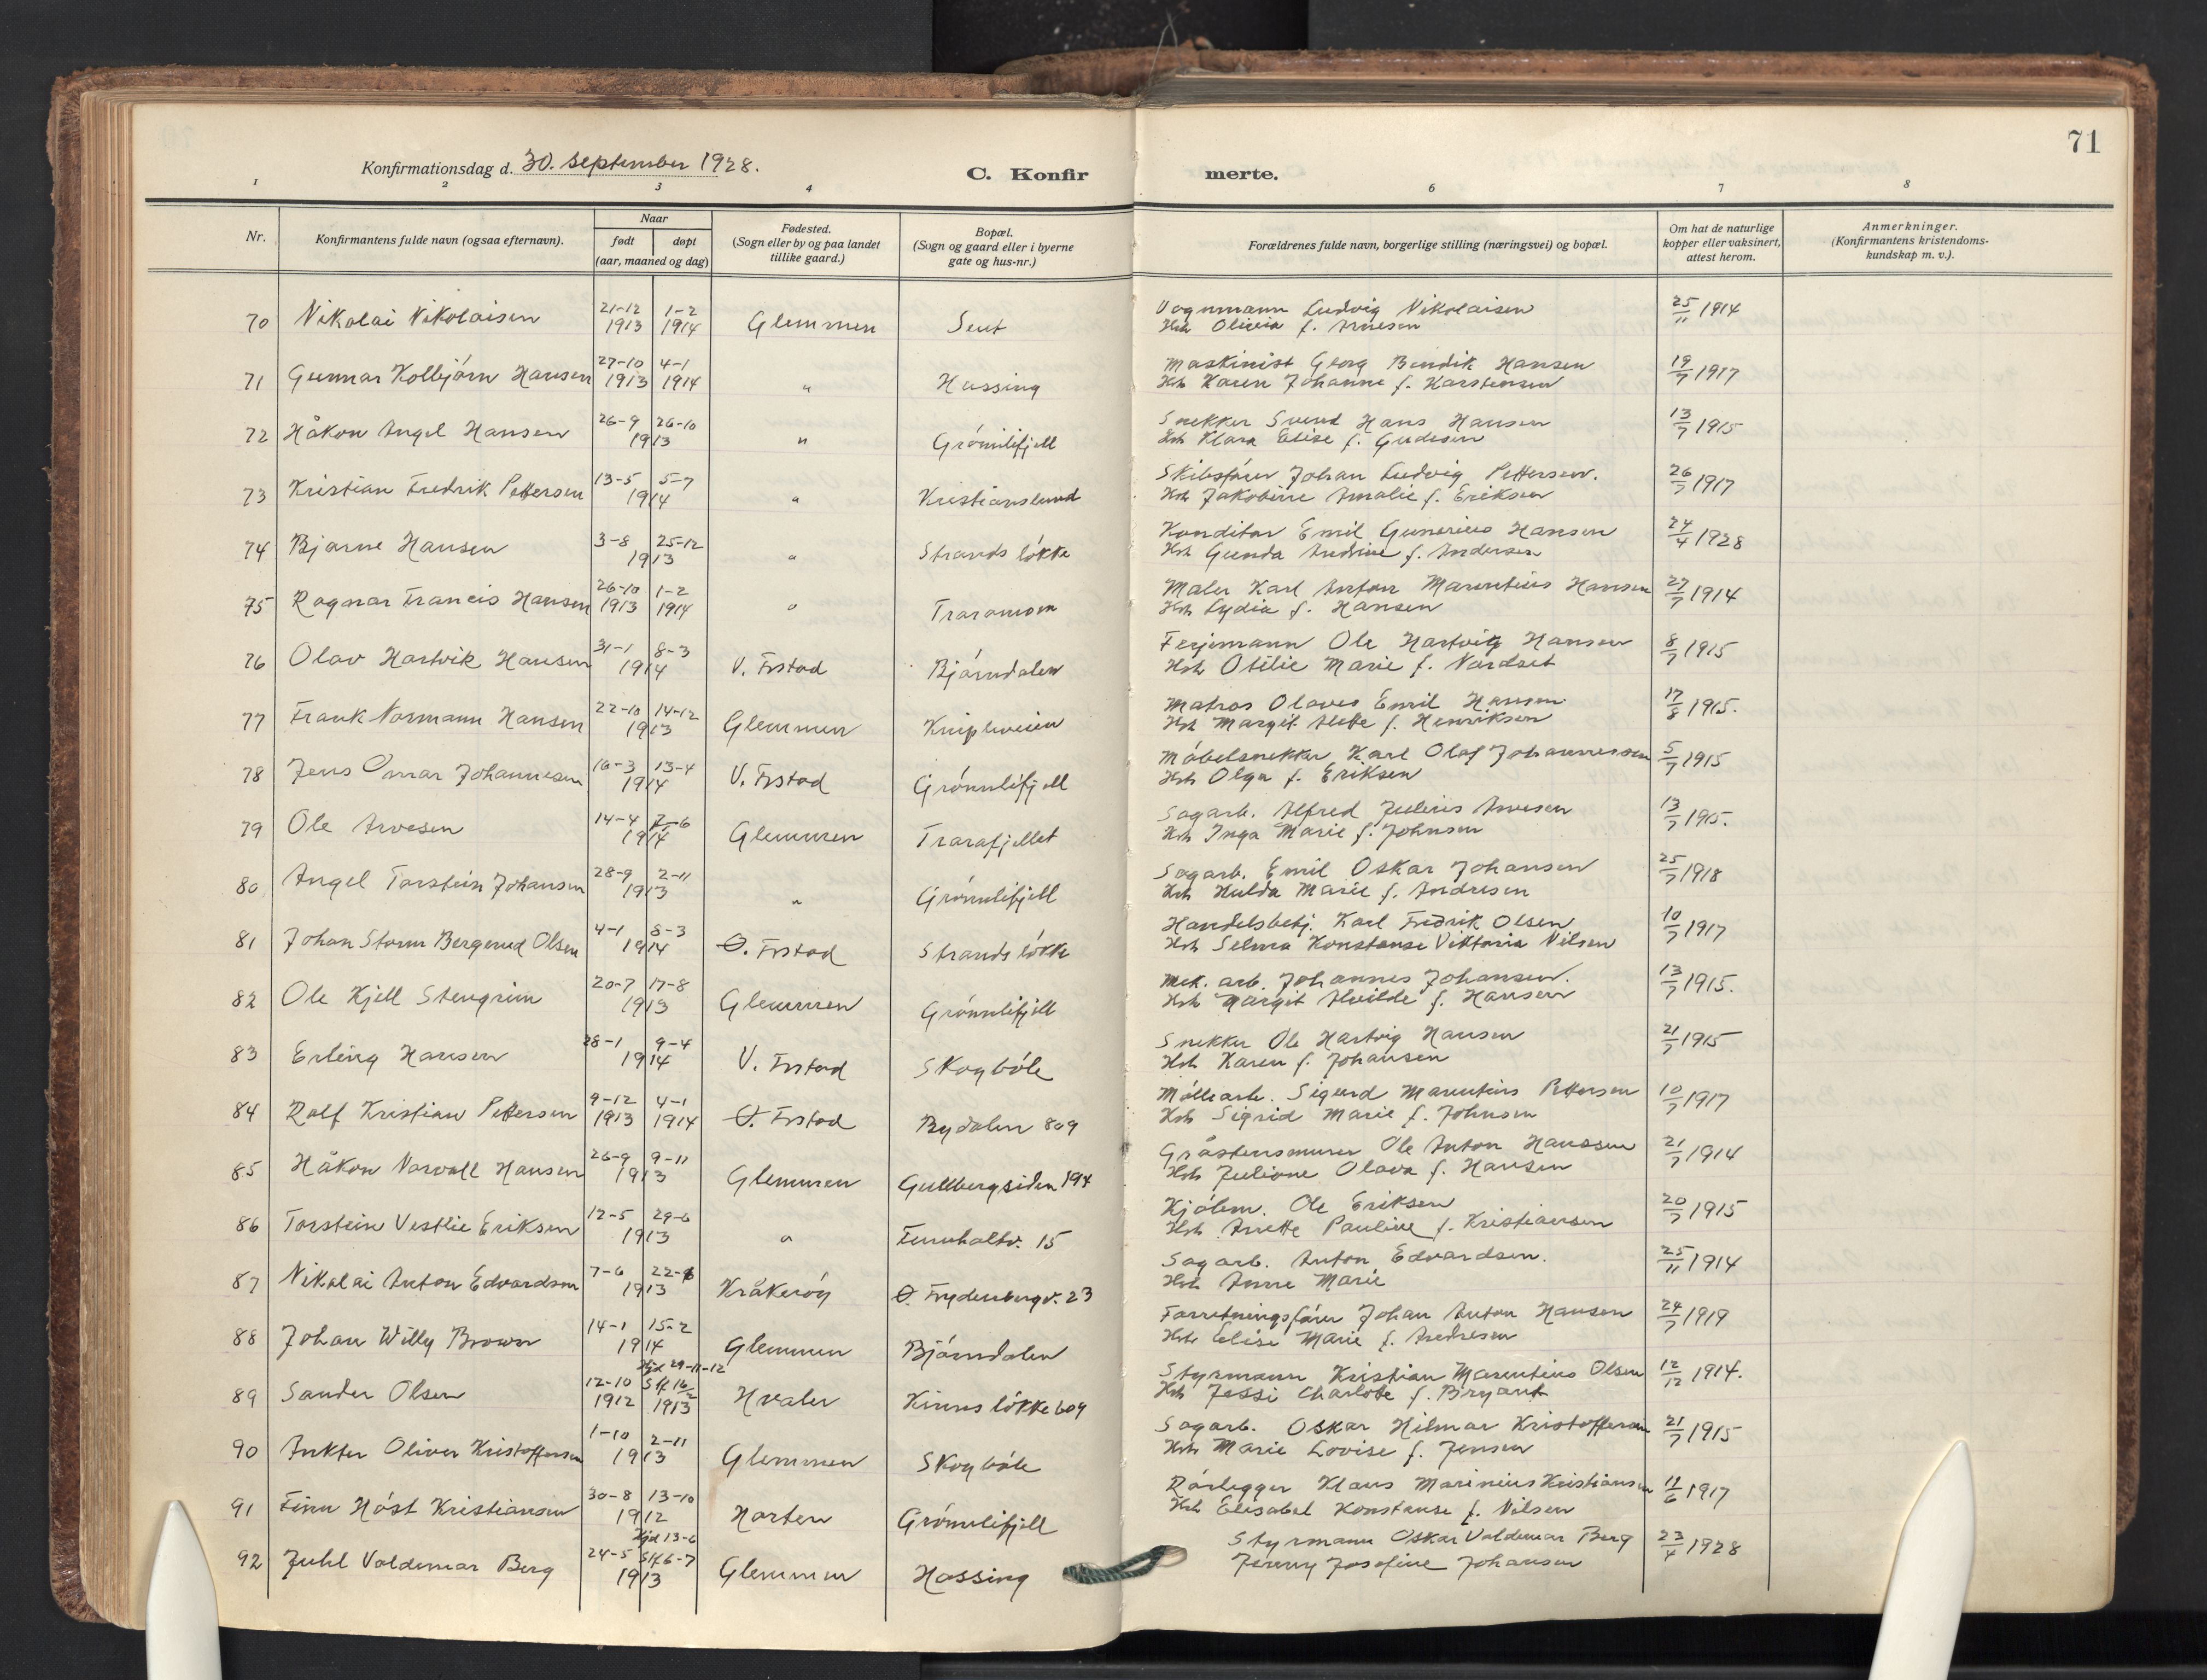 71
Konfirmationsdag d. 30. september 1928.
C. Konfirmerte.
1 2 3 4 6 7 8
Nr.
Konfirmantens fulde navn (ogsaa efternavn).
Naar
født døpt
(aar, maaned og dag)
Fødested.
(Sogn eller by og paa landet
tillike gaard.)
Bopæl.
(Sogn og gaard eller i byerne
gate og hus-nr.)
Forældrenes fulde navn, borgerlige stilling (næringsvei) og bopæl.
Om hat de naturlige
kopper eller vaksinert,
attest herom.
Anmerkninger.
(Konfirmantens kristendoms-
kundskap m. v.).
70 Nikolai Nikolaisen 21-12 1913 1-2 1914 Glemmen Seut Vognmann Ludvig Nikolaisen 25/11 1914
Hst Olivia f. Arnesen
71 Gunnar Kolbjórn Hansen 27-10 1913 4-1 1914 " Hassing Maskinist Georg Bendik Hansen 19/7 1917
Hst Karen Johanne f. Karstensen
72 Håkon Angel Hansen 26-9 26-10 1913 " Grómlifjell Snekker Svend Hans Hansen 13/7 1915
Hst Klara Elise f. Gudesen
73 Kristian Fredrik Pettersen 13-5 5-7 1914 " Kristianslund Skibsfórer Johan Ludvig Pettersen. 26/7 1917
Hst Jakobine Amalie f. Eriksen
74 Bjarne Hansen 3-8 25-12 1913 " Strands lókke Konditor Emil Gunerius Hansen 24/4 1928
Hst Gunda Andrine f. Andersen
75 Ragnar Francis Hansen 26-10 1913 1-2 1914 " Traramoen Maler Karl Anton Marentius Hansen 27/7 1914
Hst Lydia f. Hansen
76 Olav Hartvik Hansen 31-1 8-3 1914 V. Frstad Bjórndalen Ferjemann Ole Hartvig Hansen 8/7 1915
Hst Otilie Marie f. Nordset
77 Frank Normann Hansen 22-10 14-12 1913 Glemmen Kniplveien Matros Olaves Emil Hansen 17/8 1915.
Hst Margit Alette f. Henriksen
78 Jens Omar Johannesen 16-3 13-4 1914 V. Frstad Grómlifjell Móbelsnekker Karl Olaf Johannessen 5/7 1915
Hst Olga f. Eriksen
79 Ole Arvesen 14-4 7-6 1914 Glemmen Trarafjellet Sagarb. Alfred Julius Arvesen 13/7 1915.
Hst Inga Marie f. Johnsen
80 Angel Torstein Johansen 28-9 2-11 1913 " Grómlifjell Sagarb. Emil Oskar Johansen 25/7 1918
Hst Hulda Marie f. Andresen
81 Johan Storm Bergerud Olsen 4-1 8-3 1914 Ø. Frstad Strands lókke Handelsbetj. Karl Fredrik Olsen 10/7 1917
Hst Selma Konstanse Viktoria Nilsen
82 Ole Kjell Stengrim 20-7 17-8 1913 Glemmen Grómlifjell Mek. arb. Johannes Johansen. 13/7 1915.
Hst Margit Alvilde f. Hansen
83 Erling Hansen 28-1 9-4 1914 V. Frstad Skogbóle Snekker Ole Hartvig Hansen 21/7 1915
Hst Karen f. Johansen
84 Rolf Kristian Pettersen 9-12 1913 4-1 1914 Ø. Frstad Bydalen 809 Móllearb. Sigurd Marentius Pettersen 10/7 1917
Hst Sigrid Marie f. Johnsen
85 Håkon Norvall Hansen 26-9 9-11 1913 Glemmen Gullbergsiden 194 Gråstensmurer Ole Anton Hanssen 21/7 1914
Hst Juliane Olava f. Hansen
86 Torstein Vestlie Eriksen 12-5 29-6 1913 " Furuholtv. 15 Kjólem. Ole Eriksen 20/7 1915
Hst Anette Pauline f. Kristiansen
87 Nikolai Anton Edvardsen 7-6 22-6 1913 Kråkeróy Ø. Frydenbergv. 23 Sagarb. Anton Edvardsen. 25/11 1914
Hst Anne Marie
88 Johan Willy Brown 14-1 15-2 1914 Glemmen Bjórndalen Forretningsfórer Johan Anton Hansen 24/7 1919
Hst Elise Marie f. Andresen
89 Sander Olsen 12-10 1912 Hjd 29-11-12 Stf 16/2 1913 Hvaler Kinns lókke 609 Styrmann Kristian Marentius Olsen 12/12 1914.
Hst Jessi Charlote f. Bryant
90 Ankter Oliver Kristoffersen 1-10 2-11 1913 Glemmen Skogbóle Sagarb. Oskar Hilmar Kristoffersen 21/7 1915
Hst Marie Lovise f. Jensen
91 Finn Hóst Kristiansen 30-8 13-10 1912 Horten Grómlifjell Rórlegger Klaus Marinius Kristiansen 11/6 1917
Hst Elisabet Konstanse f. Nilsen
92 Juhl Valdemar Berg 24-5 Hjd 13-6 Stf 6-7 1913 Glemmen Hassing Styrmann Oskar Valdemar Berg 23/4 1928
Jenny Josefine Johansen